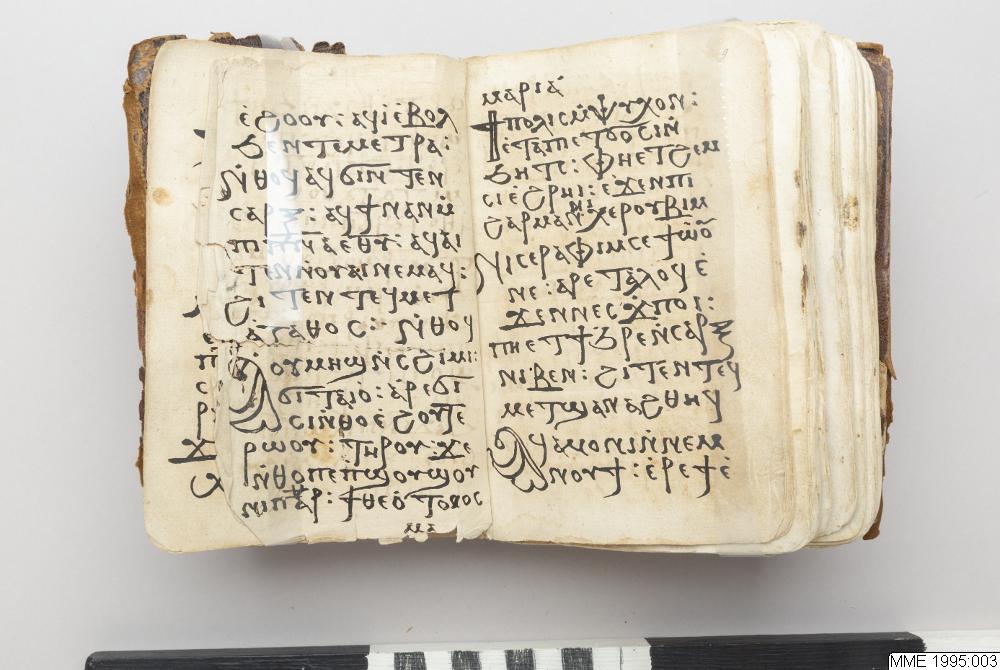 ⲉϩⲟⲟⲩ: ⲁϥⲓⲉⲃⲟⲗ
ϧⲉⲛⲧⲉⲙⲉⲧⲣⲁ:
ⲛ̀ⲑⲟϥ ⲁϥϭⲓⲛ̀ⲧⲉⲛ
ⲥⲁⲣⲝ: ⲁϥϯⲛⲁⲛⲙ̀
ⲡⲓⲡ̅ⲛ̅ⲁ̅ ⲉⲑⲩ: ⲁϥⲁⲓ
ⲧⲉⲛⲛ̀ⲟⲩⲁⲓ ⲛⲉⲙⲁϥ:
ϩⲓⲧⲉⲛ ⲧⲉϥⲙⲉⲧ
ⲁⲅⲁⲑⲟⲥ: ⲛ̀ⲑⲟϥ
ⲟⲩⲙⲏϣ ⲛ̀ⲥϩⲓⲙⲓ:
ϭⲓⲧⲁⲓⲟ: ⲁⲣⲉϭⲓ
ⲥⲓ ⲛ̀ⲑⲟ ⲉϩⲟⲧⲉ
ⲣⲱⲟⲩ: ⲧⲏⲣⲟⲩ: ϫⲉ
ⲛ̀ⲑⲟ ⲡⲉ ⲡϣⲟⲩϣⲟⲩ
ⲛⲓⲡⲁⲣ: ϯⲑⲉⲟ̀ⲧⲟⲕⲟⲥ
ⲙⲁⲣⲓⲁ
ϯⲡⲟⲗⲓⲥ ⲙ̀ⲯⲩⲭⲟⲛ:
ⲉ̀ⲧⲁⲡⲉⲧϭⲟⲥⲓ ⲛ̀
ϧⲏⲧⲥ: ⲫⲏⲉⲧϩⲉⲙ
ⲥⲓ ⲉ̀ϩⲣⲏⲓ: ⲉ̀ϫⲉⲛ ⲡⲓ
ϩⲁⲣⲙⲁ ⲛ̀ⲛⲓⲭⲉⲣⲟⲩⲃⲓⲙ
ⲛⲓⲥⲉⲣⲁⲫⲓⲙ ⲥⲉϯⲱⲟⲩ
ⲛⲉ: ⲁⲣⲉⲧⲁⲗⲟϥ ⲉ̀
ϫⲉⲛ ⲛⲉϫⲫⲟⲓ:
ⲡⲏⲉⲧϯϧⲣⲉ ⲛ̀ⲥⲁⲣⲝ
ⲛⲓⲃⲉⲛ: ϩⲓⲧⲉⲛ ⲧⲉϥ
ⲙⲉⲧϣⲁⲛⲁϩⲑⲏϥ
ⲁϥⲁⲙⲟⲛⲓ ⲛ̀ⲛⲉⲙ
ⲛⲟⲩϯ: ⲉ̀ⲣⲉϯⲉ̀
MME 1995:003